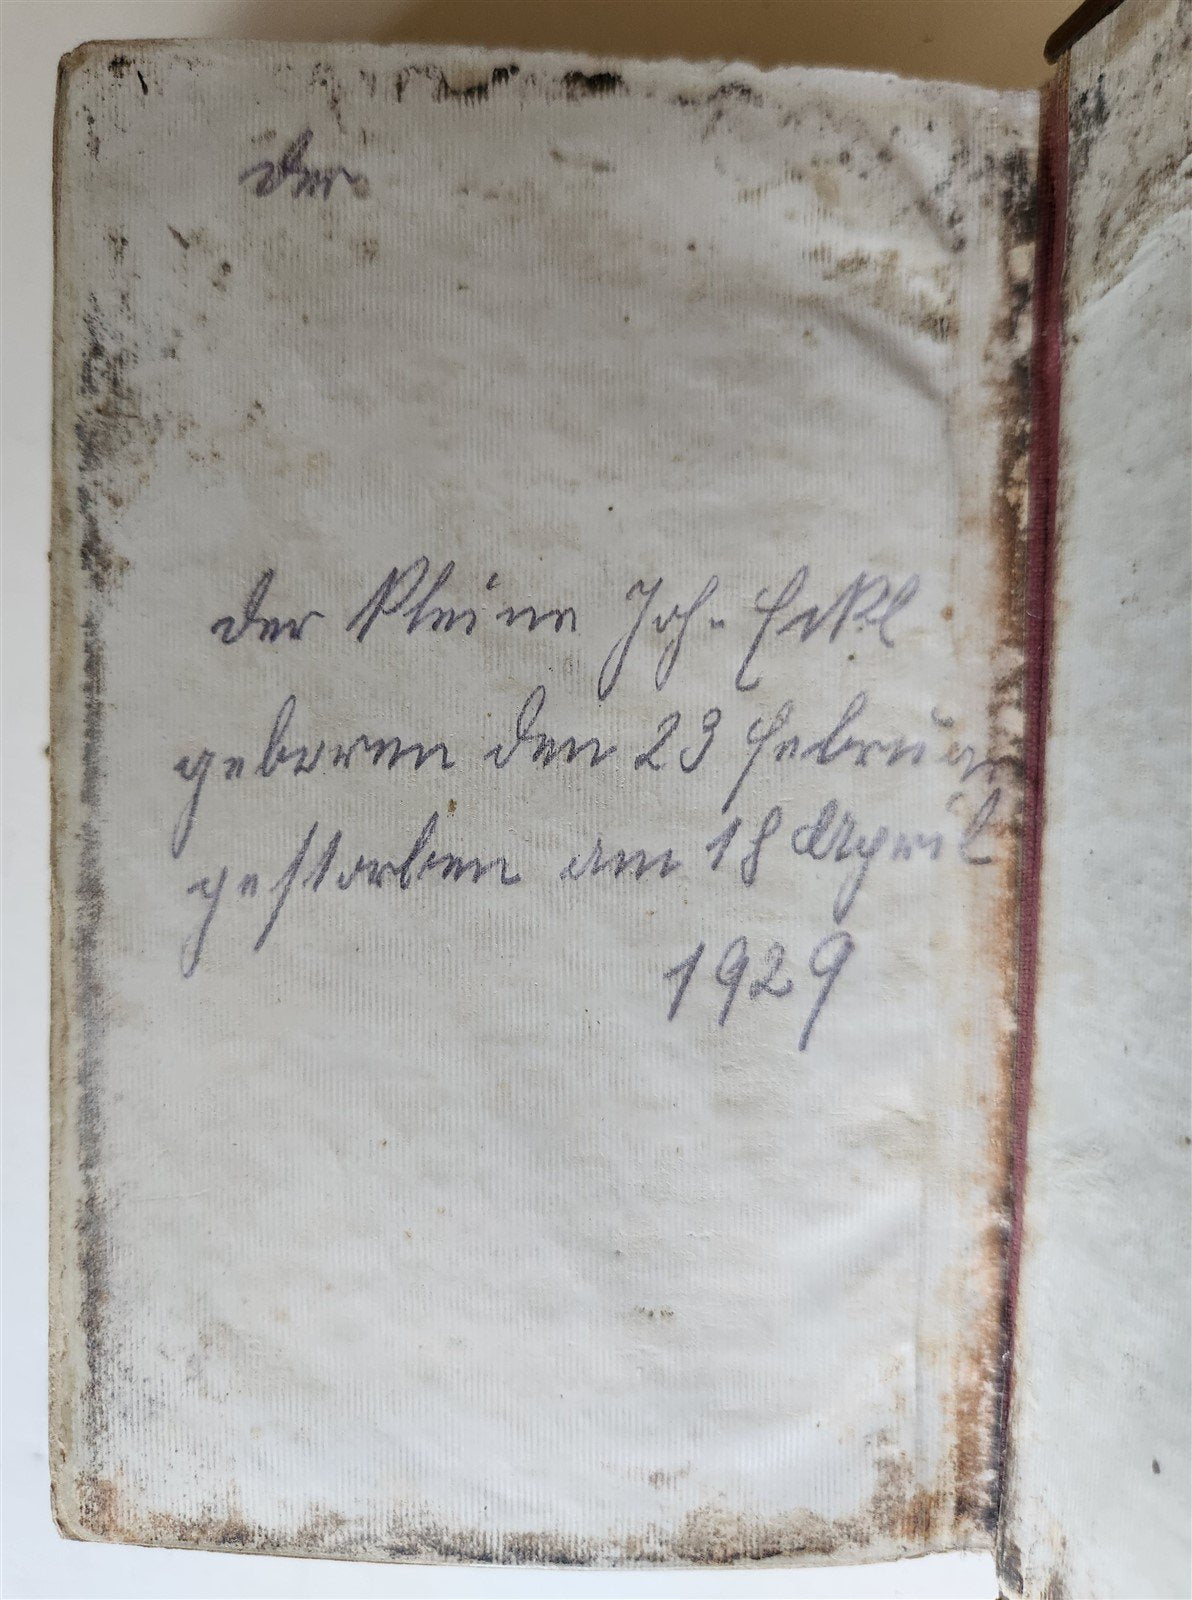 der
der kleine Joh. Eckl
geboren den 23 Februar
gestorben am 18 April
1929